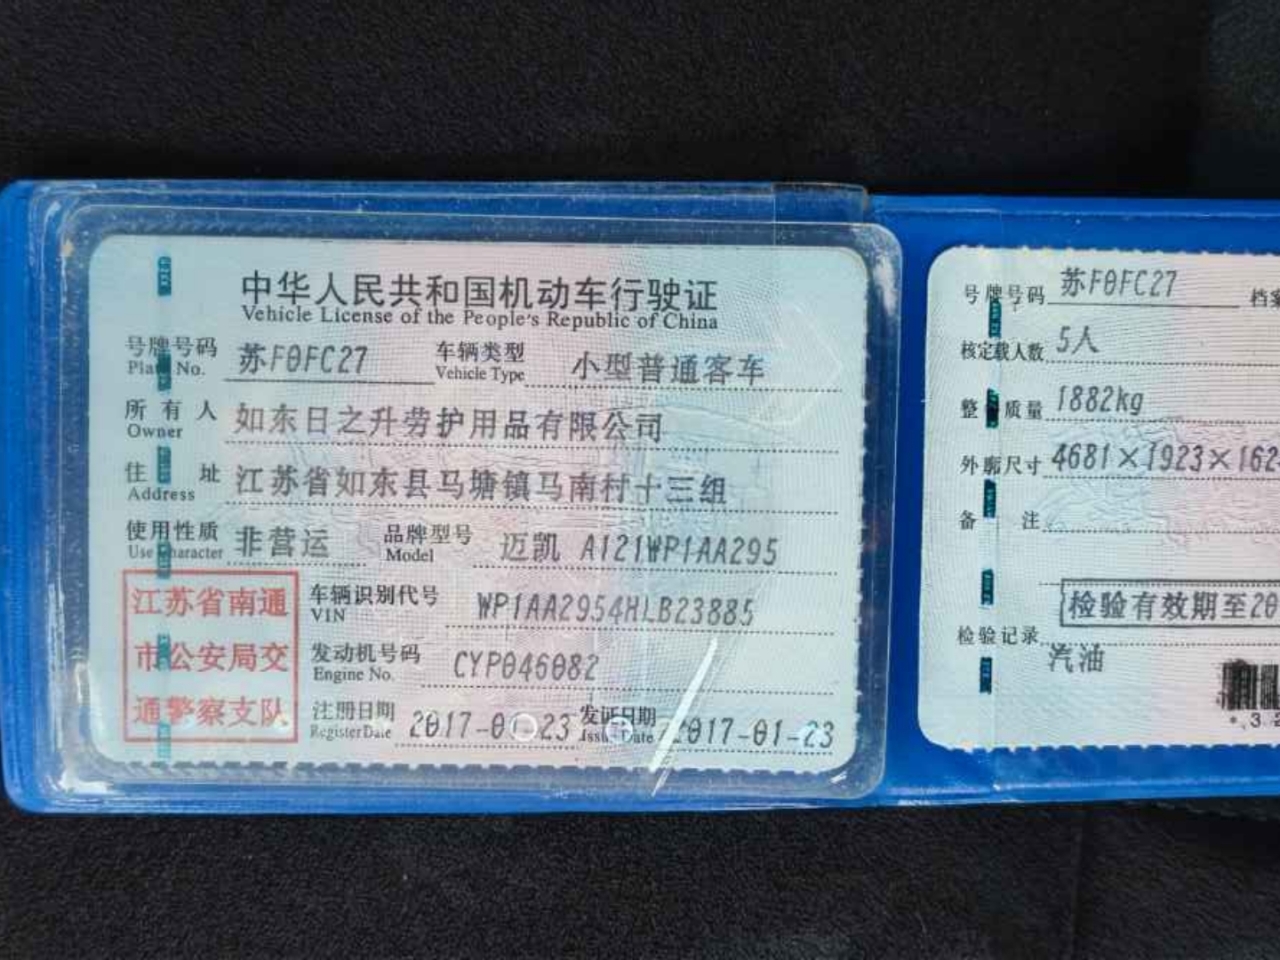 中华人民共和国机动车行驶证
Vehicle License of the People's Republic of China
号牌号码 苏F0FC27 车辆类型 小型普通客车
Plate No. Vehicle Type
所有人 如东日之升劳护用品有限公司
Owner
住址 江苏省如东县马塘镇马南村十三组
Address
使用性质 非营运 品牌型号 迈凯 A121WP1AA295
Use Character Model
江苏省南通
市公安局交
通警察支队
车辆识别代号 WP1AA2954HLB23885
VIN
发动机号码 CYP046082
Engine No.
注册日期 2017-01-23 发证日期 2017-01-23
Register Date Issue Date
号牌号码 苏F0FC27
核定载人数 5人
整备质量 1882kg
外廓尺寸 4681×1923×162
备注
检验有效期至20
检验记录
汽油